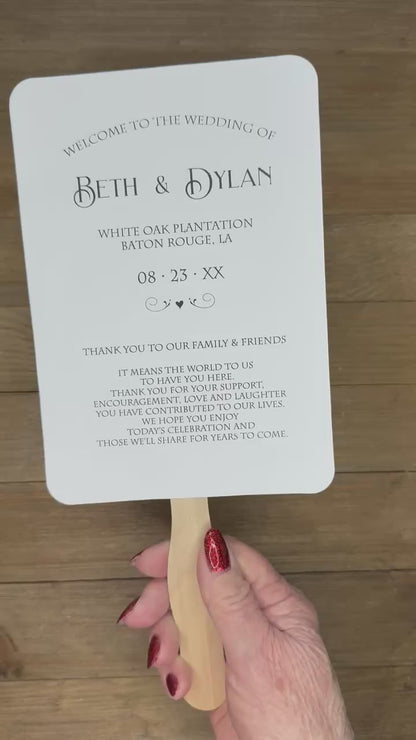 WELCOME TO THE WEDDING OF
BETH & DYLAN
WHITE OAK PLANTATION
BATON ROUGE, LA
08 · 23 · XX
THANK YOU TO OUR FAMILY & FRIENDS
IT MEANS THE WORLD TO US
TO HAVE YOU HERE.
THANK YOU FOR YOUR SUPPORT,
ENCOURAGEMENT, LOVE AND LAUGHTER
YOU HAVE CONTRIBUTED TO OUR LIVES.
WE HOPE YOU ENJOY
TODAY'S CELEBRATION AND
THOSE WE'LL SHARE FOR YEARS TO COME.